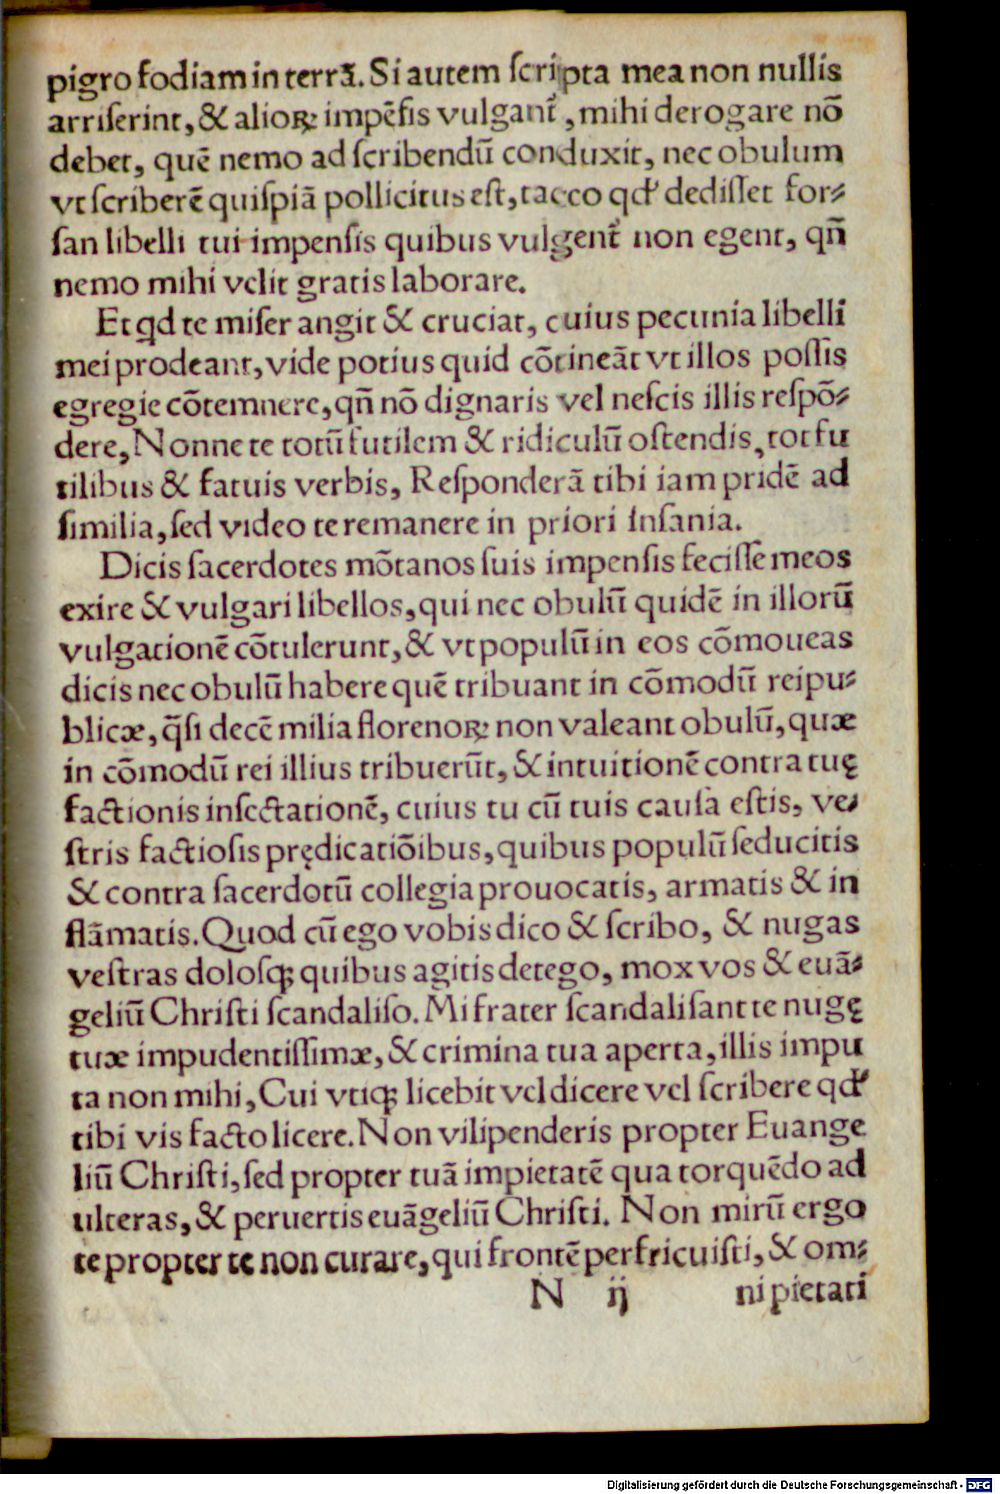 pigro fodiam in terrā. Si autem ſcripta mea non nullis
arriſerint, & alioꝝ impēſis vulgant᷑, mihi derogare nō
debet, quē nemo ad ſcribendū conduxit, nec obulum
vt ſcriberē quiſpiā pollicitus eſt, tacco qd' dediſſet for⸗
ſan libelli tui impenſis quibus vulgent᷑ non egent, qn̄
nemo mihi velit gratis laborare.
Et qd te miſer angit & cruciat, cuius pecunia libelli
mei prodeant, vide potius quid cōtineāt vt illos poſſis
egregie cōtemnere, qn̄ nō dignaris vel neſcis illis reſpō⸗
dere, Nonne te totū futilem & ridiculū oſtendis, tot fu
tilibus & fatuis verbis, Reſponderā tibi iam pridē ad
ſimilia, ſed video te remanere in priori inſania.
Dicis ſacerdotes mōtanos ſuis impenſis feciſſe meos
exire & vulgari libellos, qui nec obulū quidē in illorū
vulgationē cōtulerunt, & vt populū in eos cōmoueas
dicis nec obulū habere quē tribuant in cōmodū reipu⸗
blicæ, q̄ſi decē milia florenoꝝ non valeant obulū, quæ
in cōmodū rei illius tribuerūt, & intuitionē contra tuę
factionis inſectationē, cuius tu cū tuis cauſa eſtis, ve⸗
ſtris factioſis prędicatiōibus, quibus populū ſeducitis
& contra ſacerdotū collegia prouocatis, armatis & in
flāmatis. Quod cū ego vobis dico & ſcribo, & nugas
veſtras doloſqꝫ quibus agitis detego, mox vos & euā⸗
geliū Chriſti ſcandaliſo. Mi frater ſcandaliſant te nugę
tuæ impudentiſſimæ, & crimina tua aperta, illis impu
ta non mihi, Cui vtiqꝫ licebit vel dicere vel ſcribere qd'
tibi vis facto licere. Non vilipenderis propter Euange
liū Chriſti, ſed propter tuā impietatē qua torquēdo ad
ulteras, & peruertis euāgeliū Chriſti. Non mirū ergo
te propter te non curare, qui frontē perfricuiſti, & om⸗
N ij ni pietati
Digitalisierung gefördert durch die Deutsche Forschungsgemeinschaft - DFG